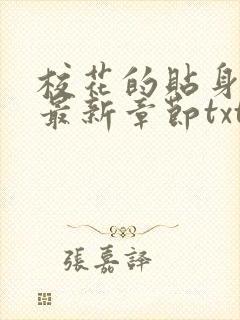 校花的貼身
最新章節txt
張嘉譯